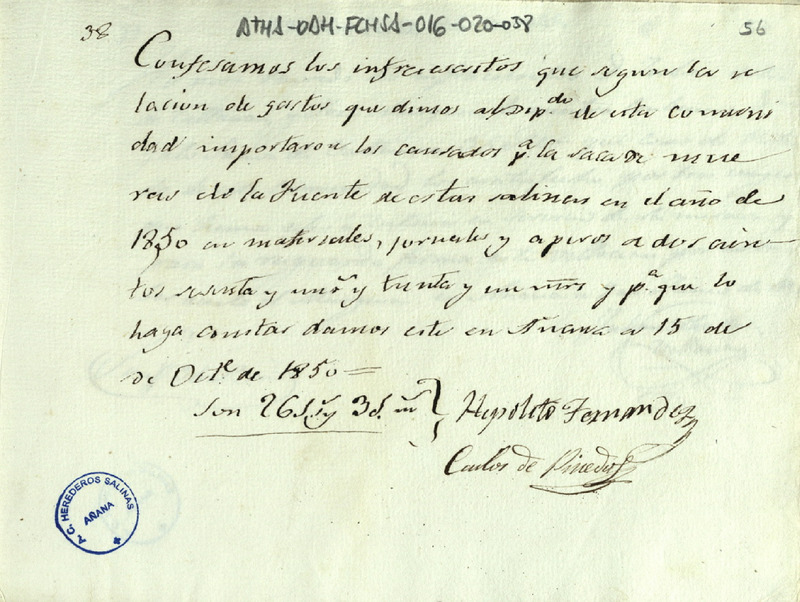 38 ATHA-DAH-FCHSA-016-020-038 56
Confesamos los infraescritos que segun la re
lacion de gastos que dimos al Dip.do de esta comuni
dad importaron los causados p.a la saca de mue
ras de la Fuente de estas salinas en el año de
1850 en materiales, jornales y aperos a doscien
tos sesenta y un r.s y treinta y un mrs y p.a que lo
haya constar damos este en Añana a 15 de
de Oct.e de 1850 =
Son 261 r.s y 31 mrs
Hipolito Fernandez
Carlos de Pinedo
T. C. HEREDEROS SALINAS
AÑANA